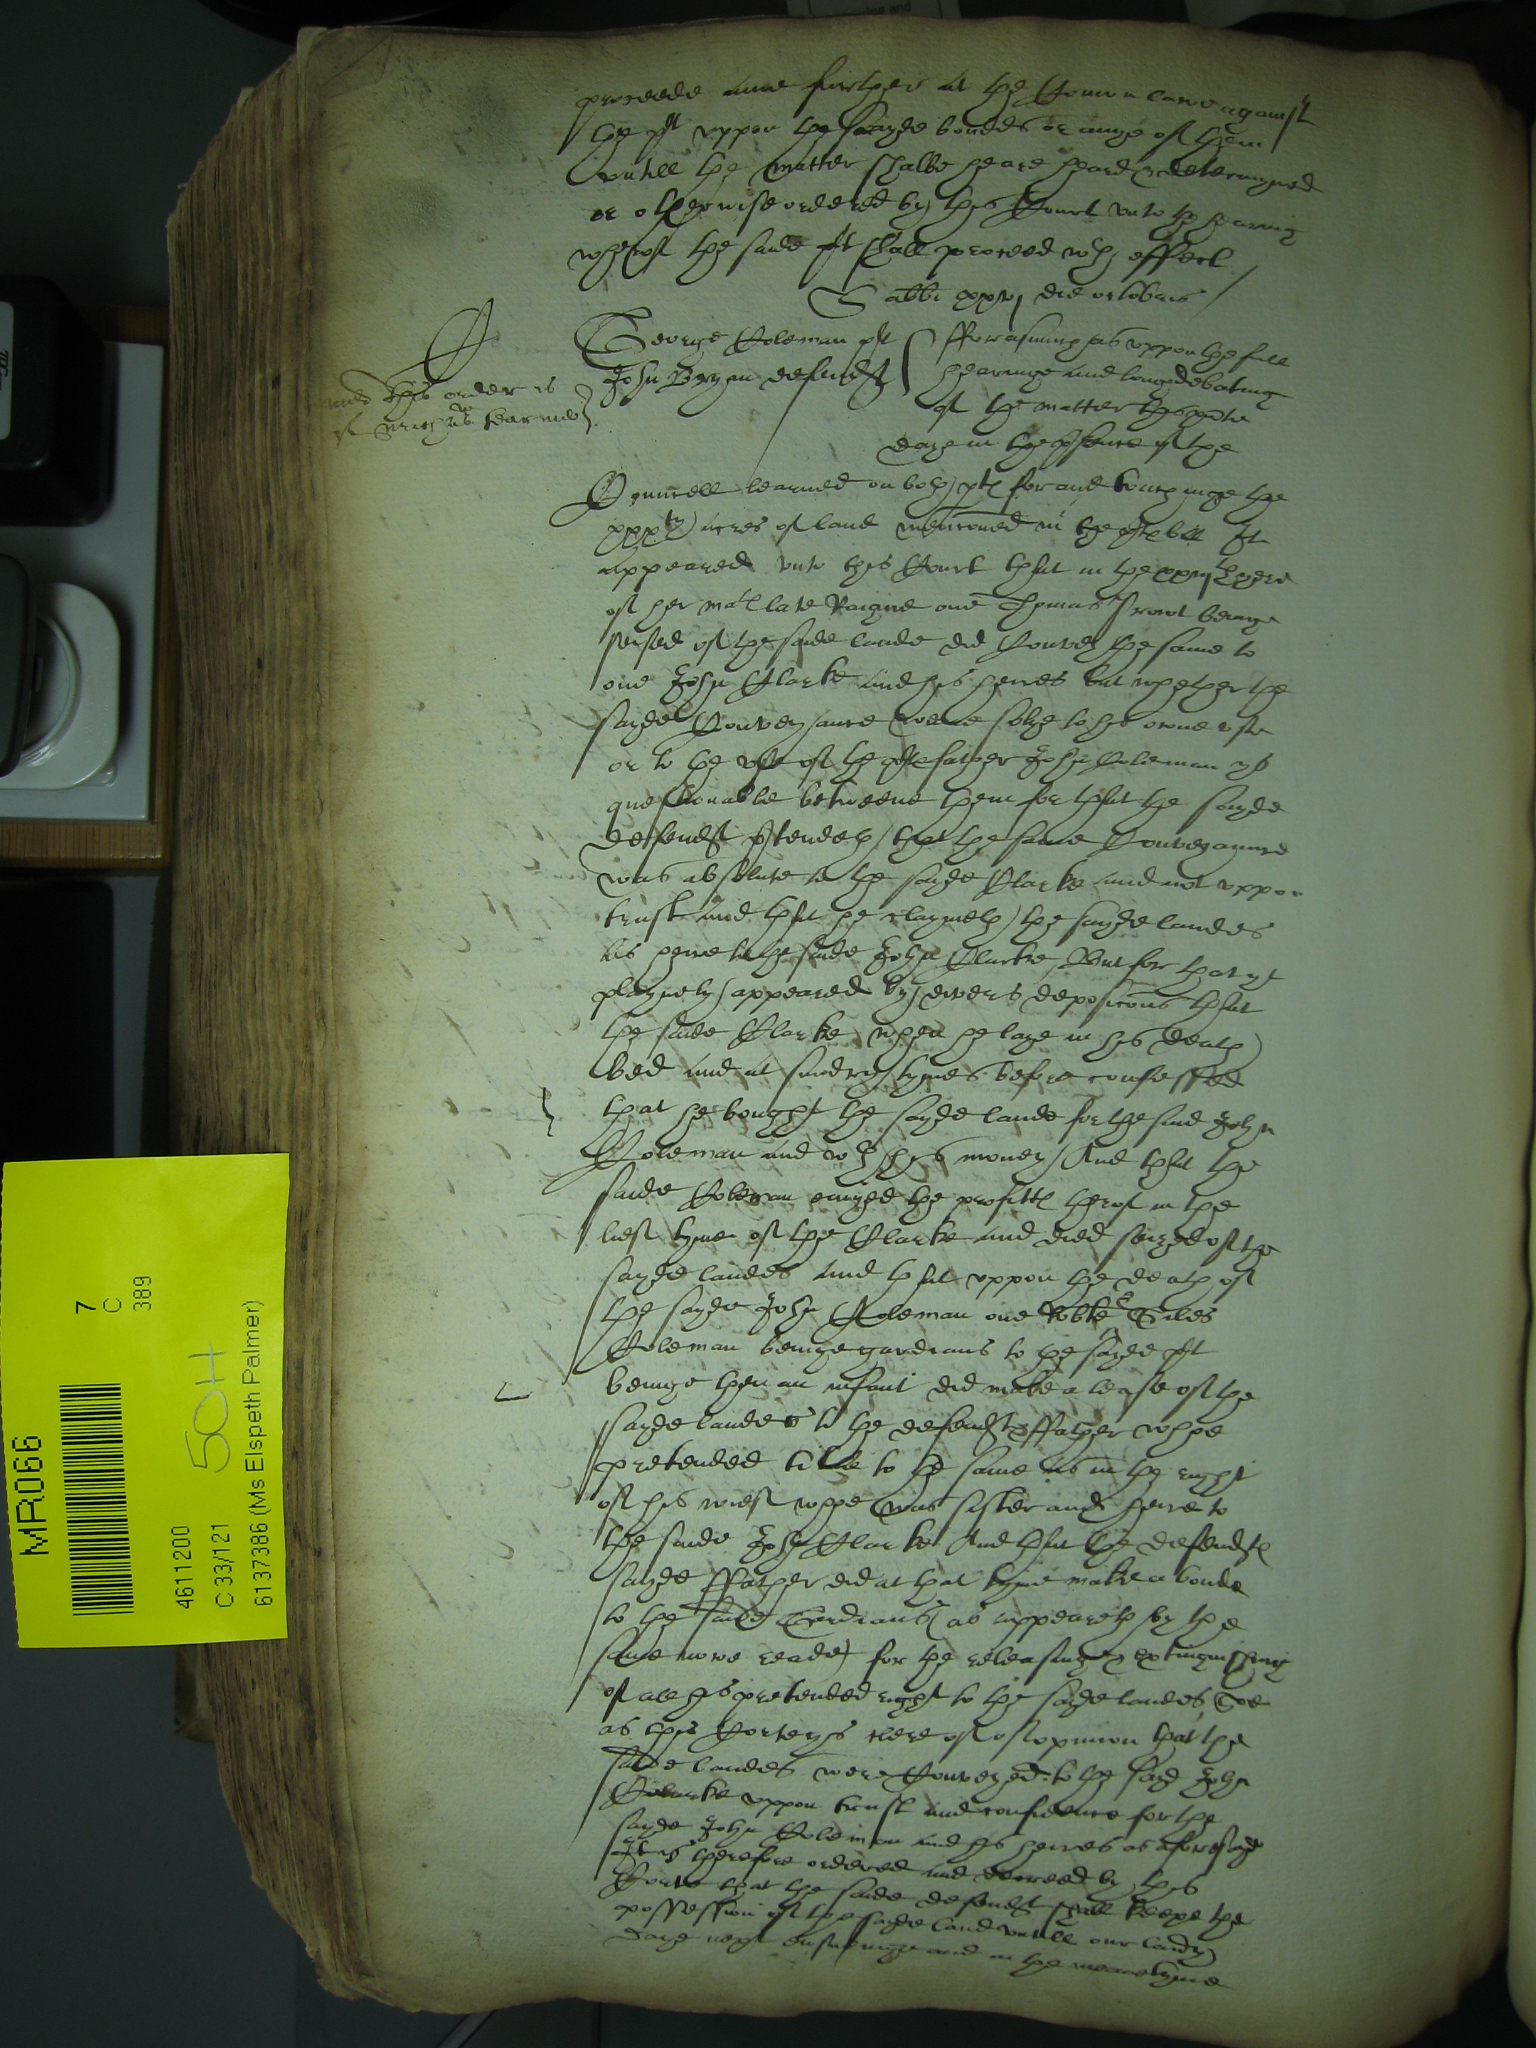 proceede anie further at the Comon lawe against
the plt uppon the sayde bondes or anye of them
untill the matter shalbe heare heard & determyned
or otherwise ordered by this Court unto the hearing
wherof the saide plt shall proceed wth effect
Sabbi xxvj die octobris
George Coleman plt
John Bryan defendt
Fforasmuch as uppon the full
hearinge and long debating
of the matter this pnte
daye in the psence of the
this order is
Councell learned on both ptes for and touchinge the
xxxty acres of land mencioned in the ptes bill It
appeared unto this Court that in the yere
of her mats late Raigne one Thomas being
seised of the saide lande did Convey the same to
one John Clarke and his heires but whether the
sayde Conveyance were solye to his owne use
or to the use of the ptes father John Coleman ys
questionable betweene them for that the sayde
defendt ptendeth that the same Conveyance
was absolute to the sayde Clarke and not uppon
trust and that he claymeth the sayde landes
as heire to the saide John Clarke, But for that yt
playnely appeared by divers deposicons that
the saide Clarke when he laye in his death
bed and at sundry tymes before confessed
that he bought the sayde lande for the said John
Coleman and wth his money And that the
saide Coleman enioyed the profittes therof in the
lief tyme of the Clarke and died seized of the
sayde landes And that uppon the death of
the sayde John Coleman one Robte & Giles
Coleman beinge gardians to the sayde plt
beinge then an infant did make a lease of the
sayde landes to the defendts ffather whoe
pretended title to the same as in the right
of his wief whoe was sister and heire to
the saide John Clarke And that the defendts
sayde ffather did at that tyme make a bonde
to the saide Gardians (as appeareth by the
same nowe reade) for the releasinge & extinguishing
of all his pretended right to the sayde landes, Soe
as this Corte ys cleere of opinion that the
saide landes were Conveyed to the said John
Clarke uppon trust and confidence for the
sayde John Coleman and his heires as aforesayd
It is therefore ordered and decreed by this
Courte that the saide defendt shall keepe the
possession of the sayde land untill our Lady
daye next ensueinge and in the meane tyme
MR066
7
C
389
4611200
C 33/121
50H
6137386 (Ms Elspeth Palmer)